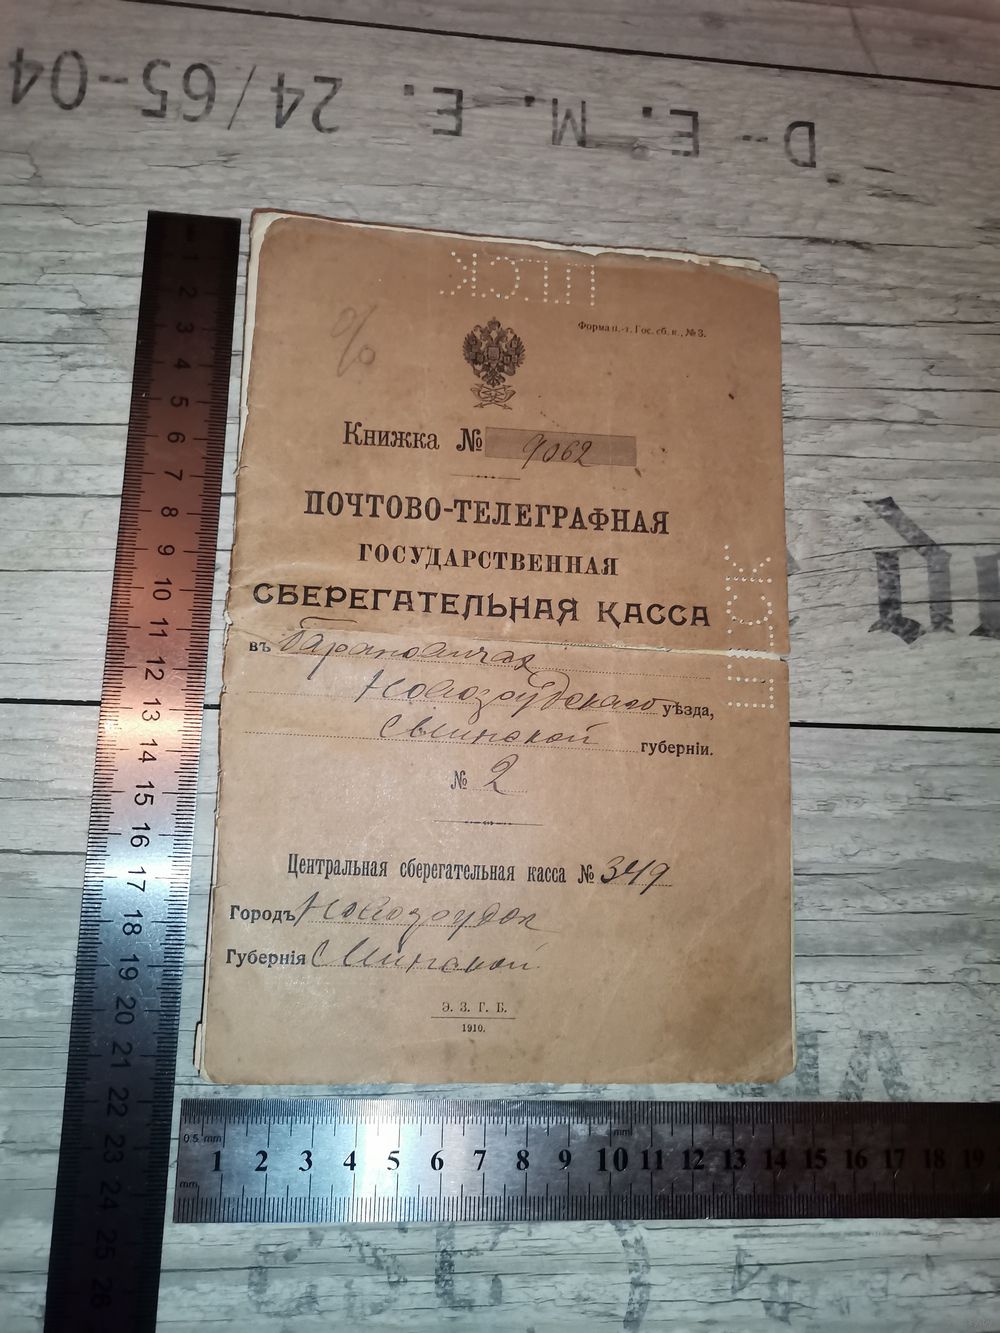 D-E.M.E. 24/65-04
ПТСК
Форма п.-т. Гос. сб. к., № 3.
%
Книжка № 9062
ПОЧТОВО-ТЕЛЕГРАФНАЯ
ГОСУДАРСТВЕННАЯ
СБЕРЕГАТЕЛЬНАЯ КАССА
въ Барановичах
Новогрудскаго уѣзда,
Минской губерніи.
№ 2
Центральная сберегательная касса № 349
Городъ Новогрудок
Губернія Минской
Э. З. Г. Б.
1910.
1 2 3 4 5 6 7 8 9 10 11 12 13 14 15 16 17 18 19 20 21 22 23 24 25 26
0.5 mm
mm
mm
1 2 3 4 5 6 7 8 9 10 11 12 13 14 15 16 17 18 19